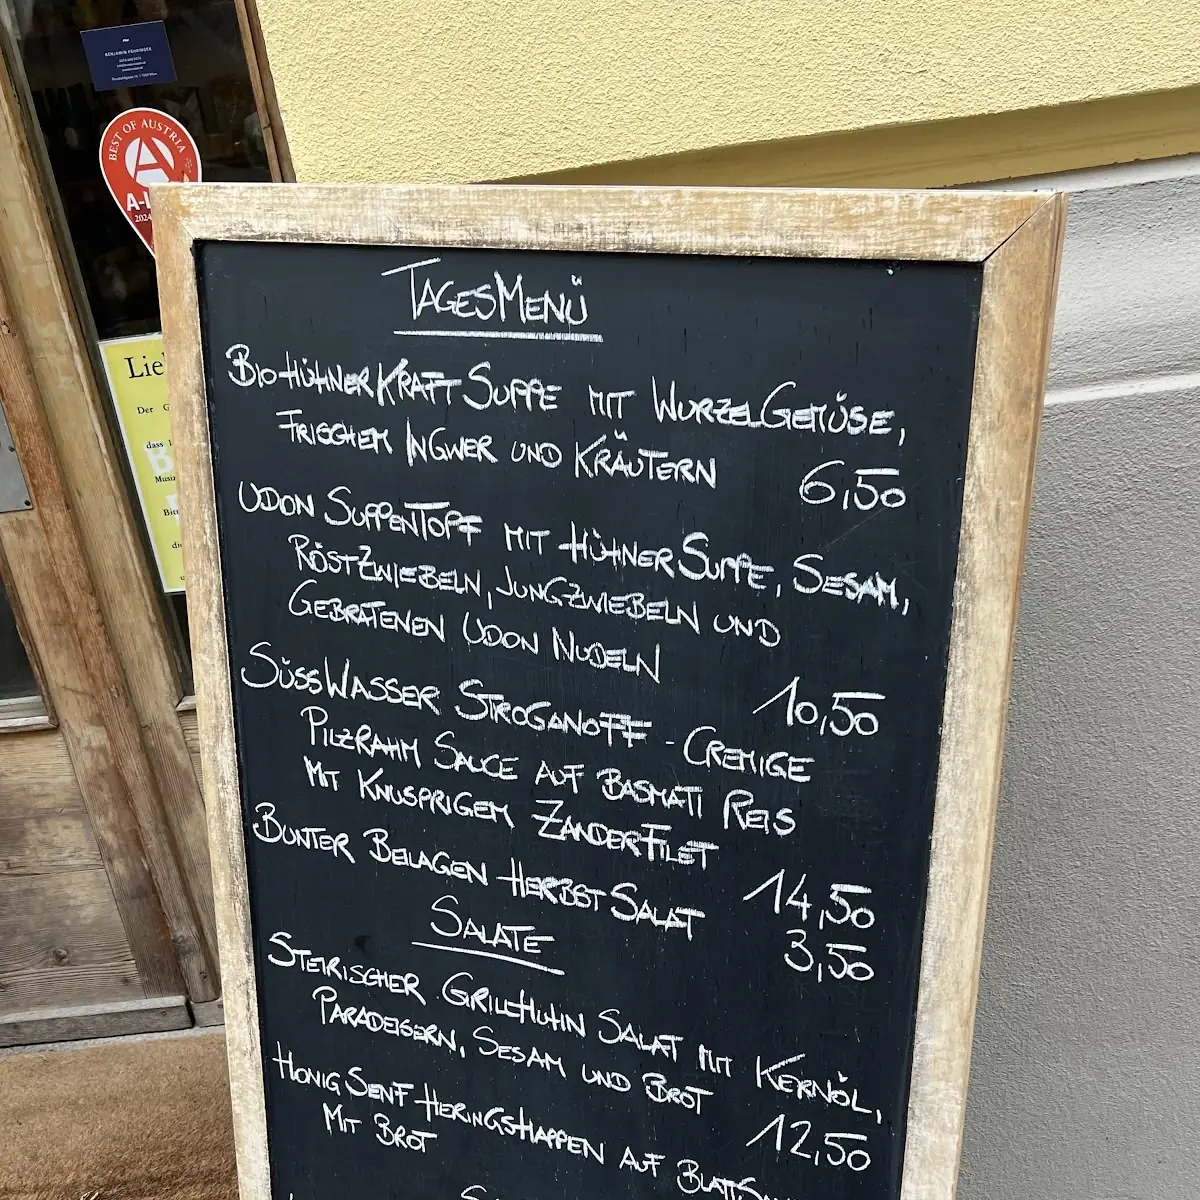 BENJAMIN FEHRINGER
BEST OF AUSTRIA
A
2024
Lie
Der G
dass
Musi
Bitte
die
TAGESMENÜ
BIO HÜHNERKRAFT SUPPE MIT WURZELGEMÜSE,
FRISCHEM INGWER UND KRÄUTERN 6,50
UDON SUPPENTOPF MIT HÜHNERSUPPE, SESAM,
RÖSTZWIEBELN, JUNGZWIEBELN UND
GEBRATENEN UDON NUDELN
10,50
SÜSSWASSER STROGANOFF - CREMIGE
PILZRAHM SAUCE AUF BASMATI REIS
MIT KNUSPRIGEM ZANDERFILET
14,50
BUNTER BEILAGEN HERBSTSALAT 3,50
SALATE
STEIRISCHER GRILLHUHN SALAT MIT KERNÖL,
PARADEISERN, SESAM UND BROT 12,50
HONIG SENF HERINGSHAPPEN AUF
MIT BROT